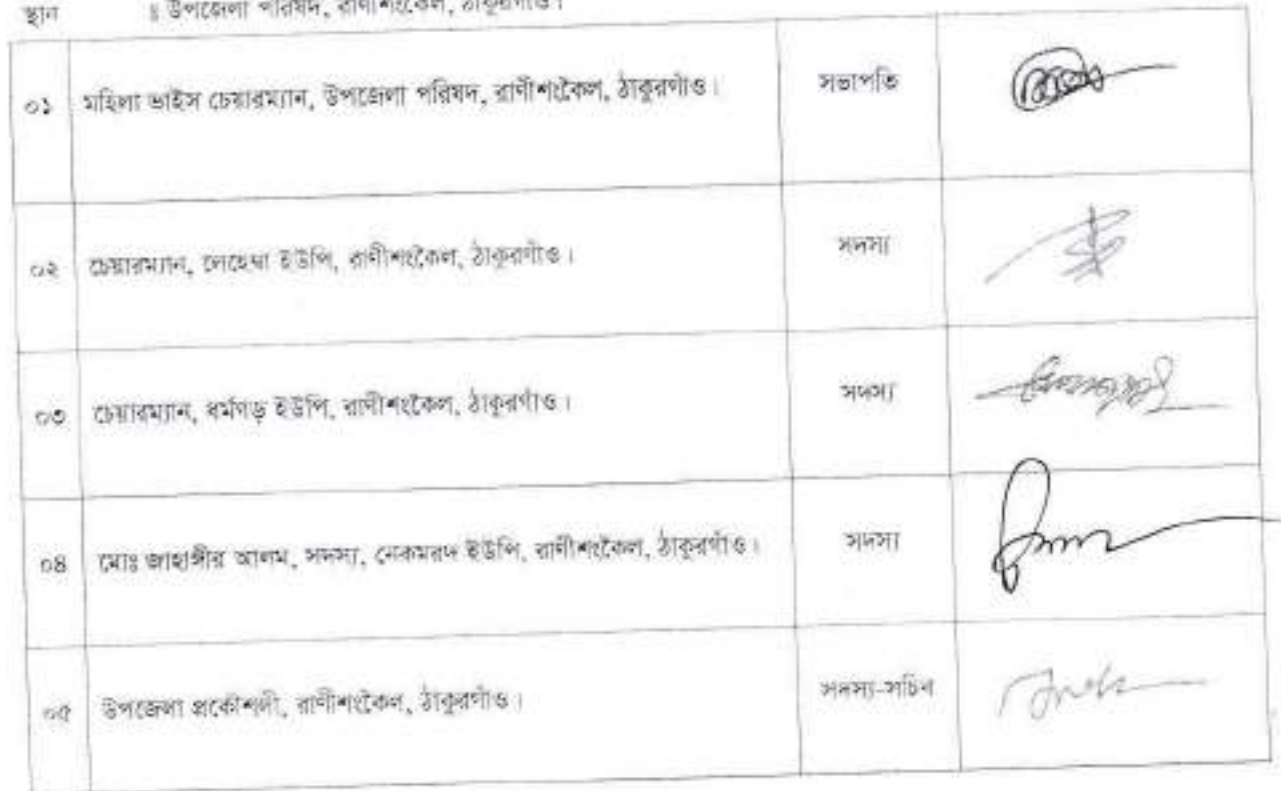 স্থান ঃ উপজেলা পরিষদ, রাণীশংকৈল, ঠাকুরগাঁও।
০১ মহিলা ভাইস চেয়ারম্যান, উপজেলা পরিষদ, রাণীশংকৈল, ঠাকুরগাঁও। সভাপতি
০২ চেয়ারম্যান, লেহেম্বা ইউপি, রাণীশংকৈল, ঠাকুরগাঁও। সদস্য
০৩ চেয়ারম্যান, ধর্মগড় ইউপি, রাণীশংকৈল, ঠাকুরগাঁও। সদস্য
০৪ মোঃ জাহাঙ্গীর আলম, সদস্য, নেকমরদ ইউপি, রাণীশংকৈল, ঠাকুরগাঁও। সদস্য
০৫ উপজেলা প্রকৌশলী, রাণীশংকৈল, ঠাকুরগাঁও। সদস্য-সচিব